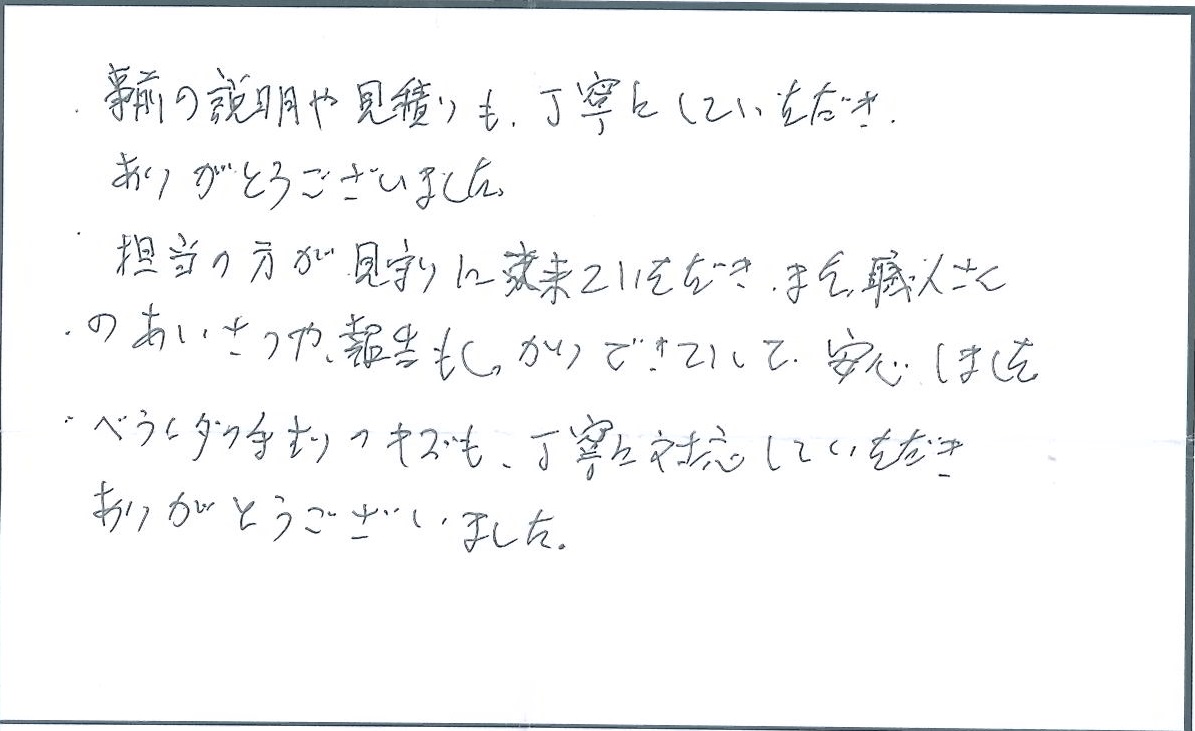 ・事前の説明や見積りも、丁寧にしていただき、
ありがとうございました。
・担当の方が見守りに来ていただき、また、職人さん
・のあいさつや、報告もしっかりできていて、安心しました
・ベランダの手すりのキズも、丁寧に対応していただき
ありがとうございました。